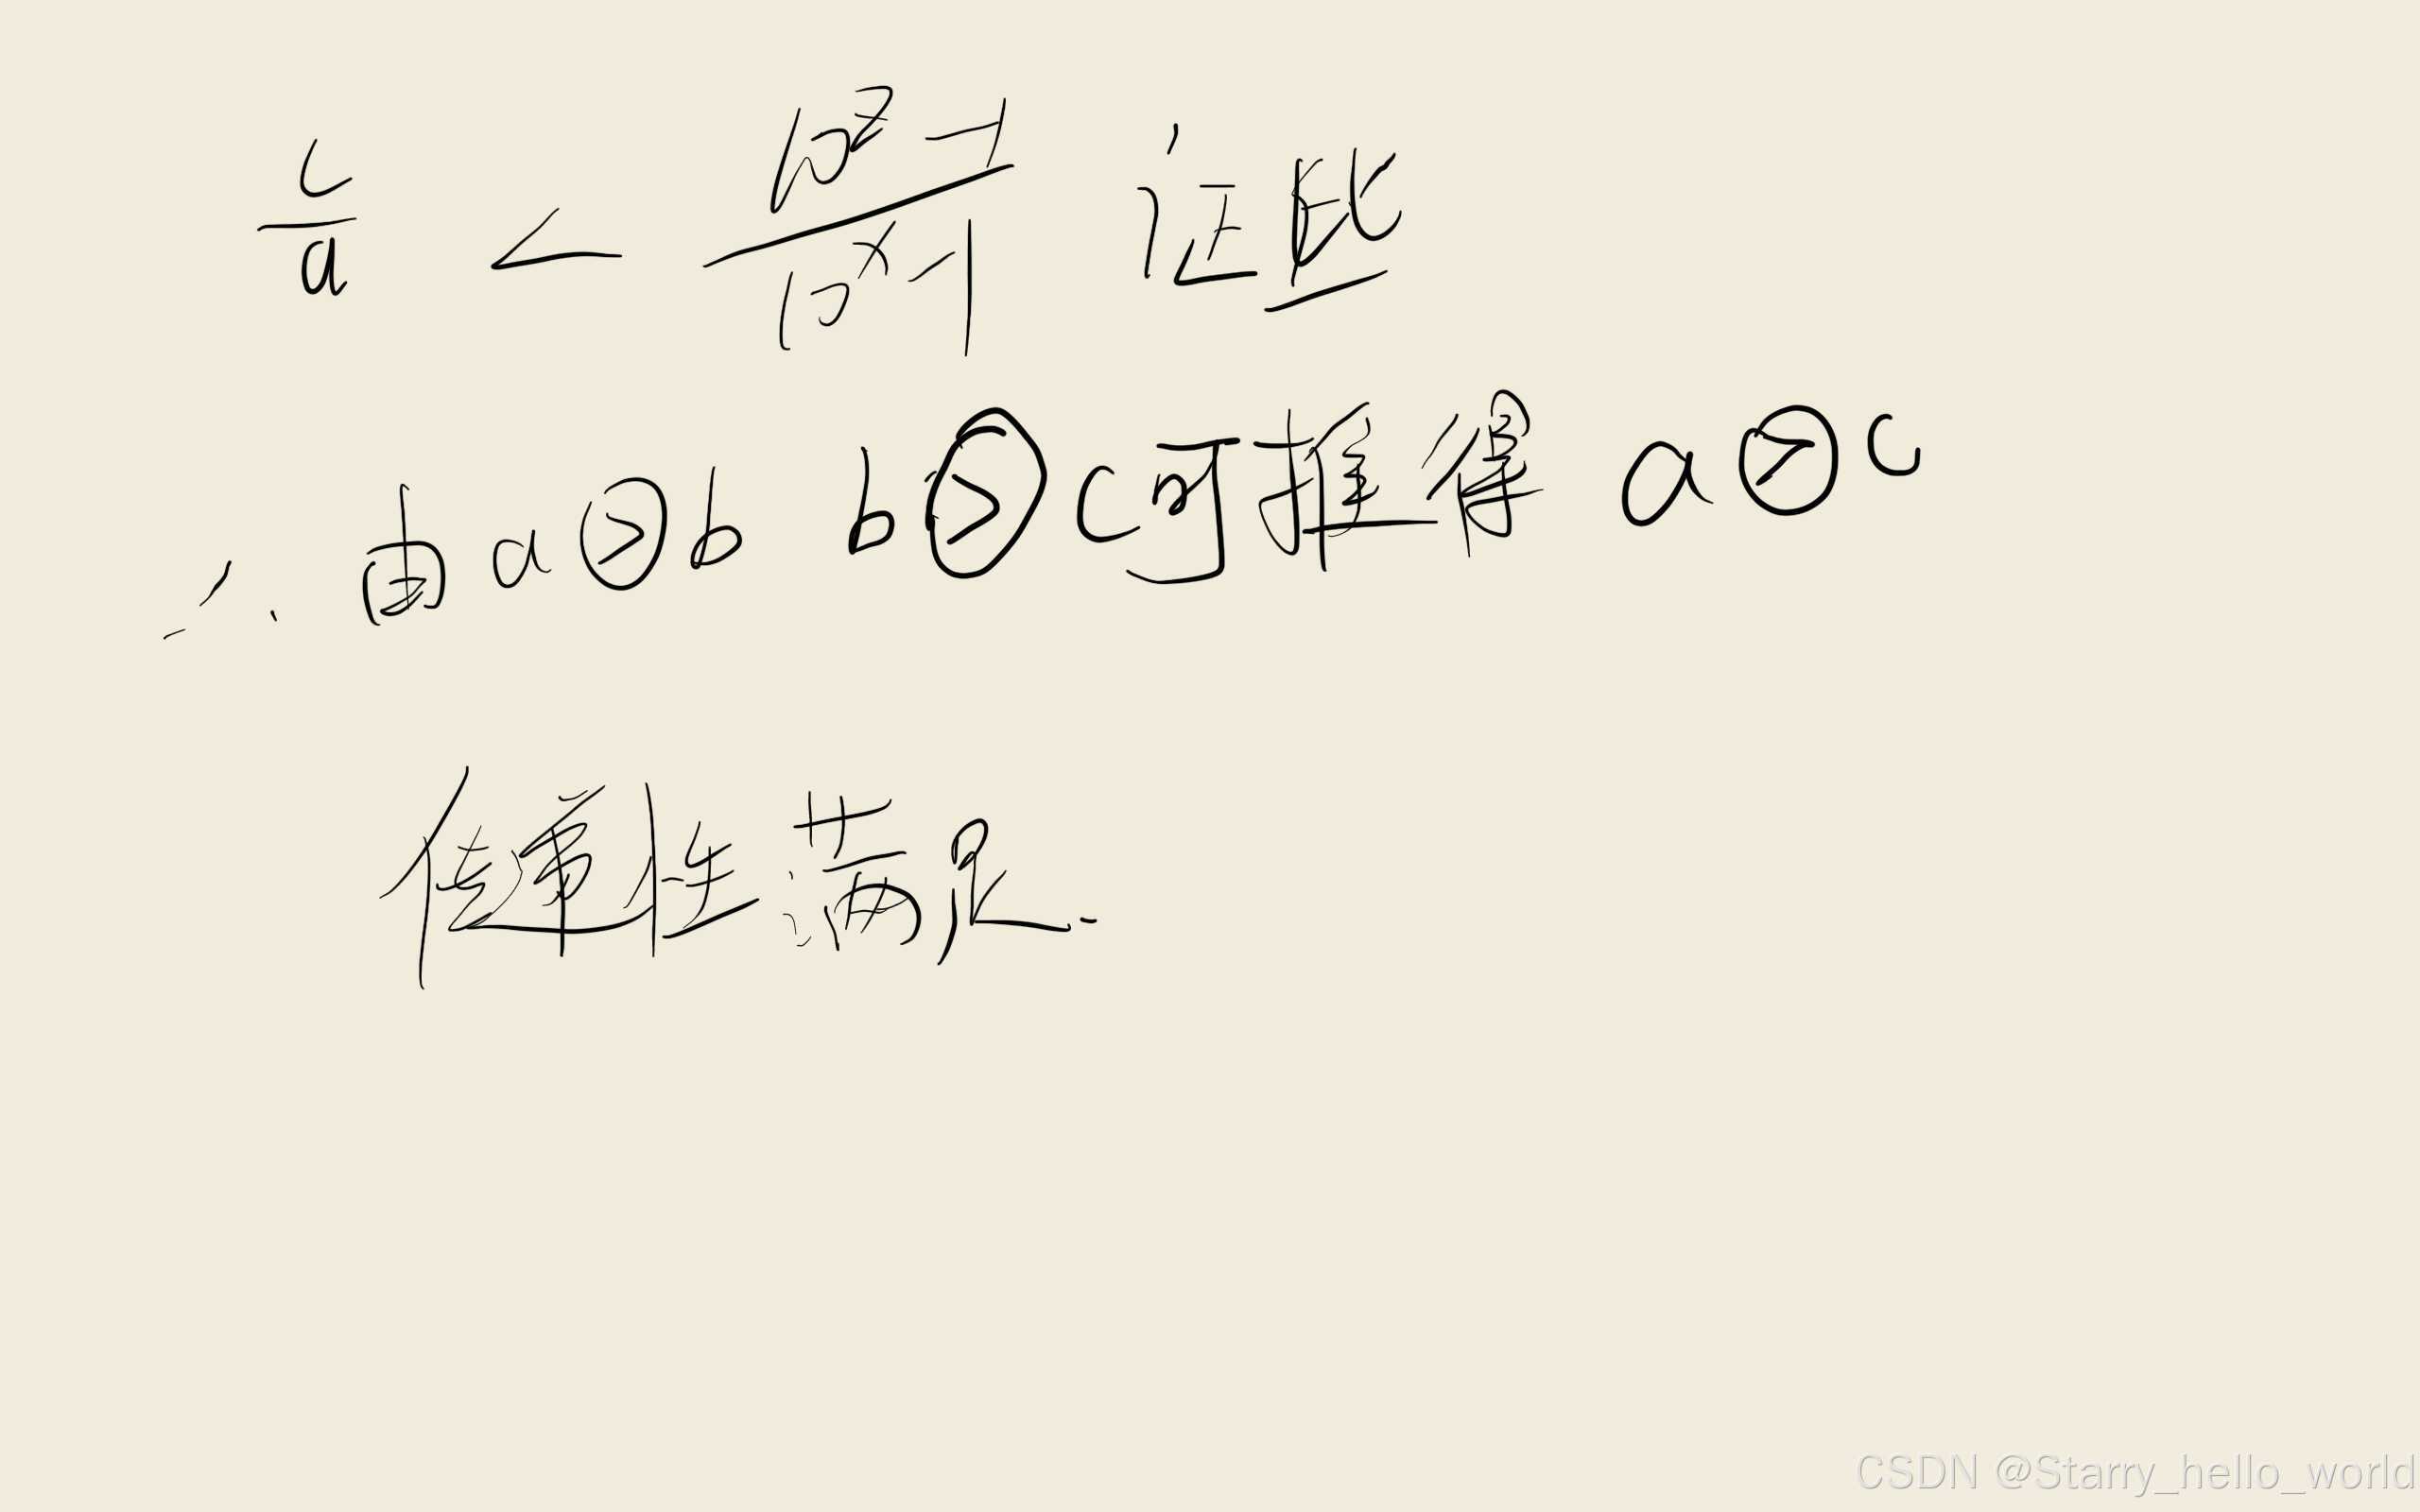 c/a < (10^z - 1)/(10^x - 1) 证毕
∴ 由 a⊙b b⊙c 可推得 a⊙c
传递性满足.
CSDN @Starry_hello_world